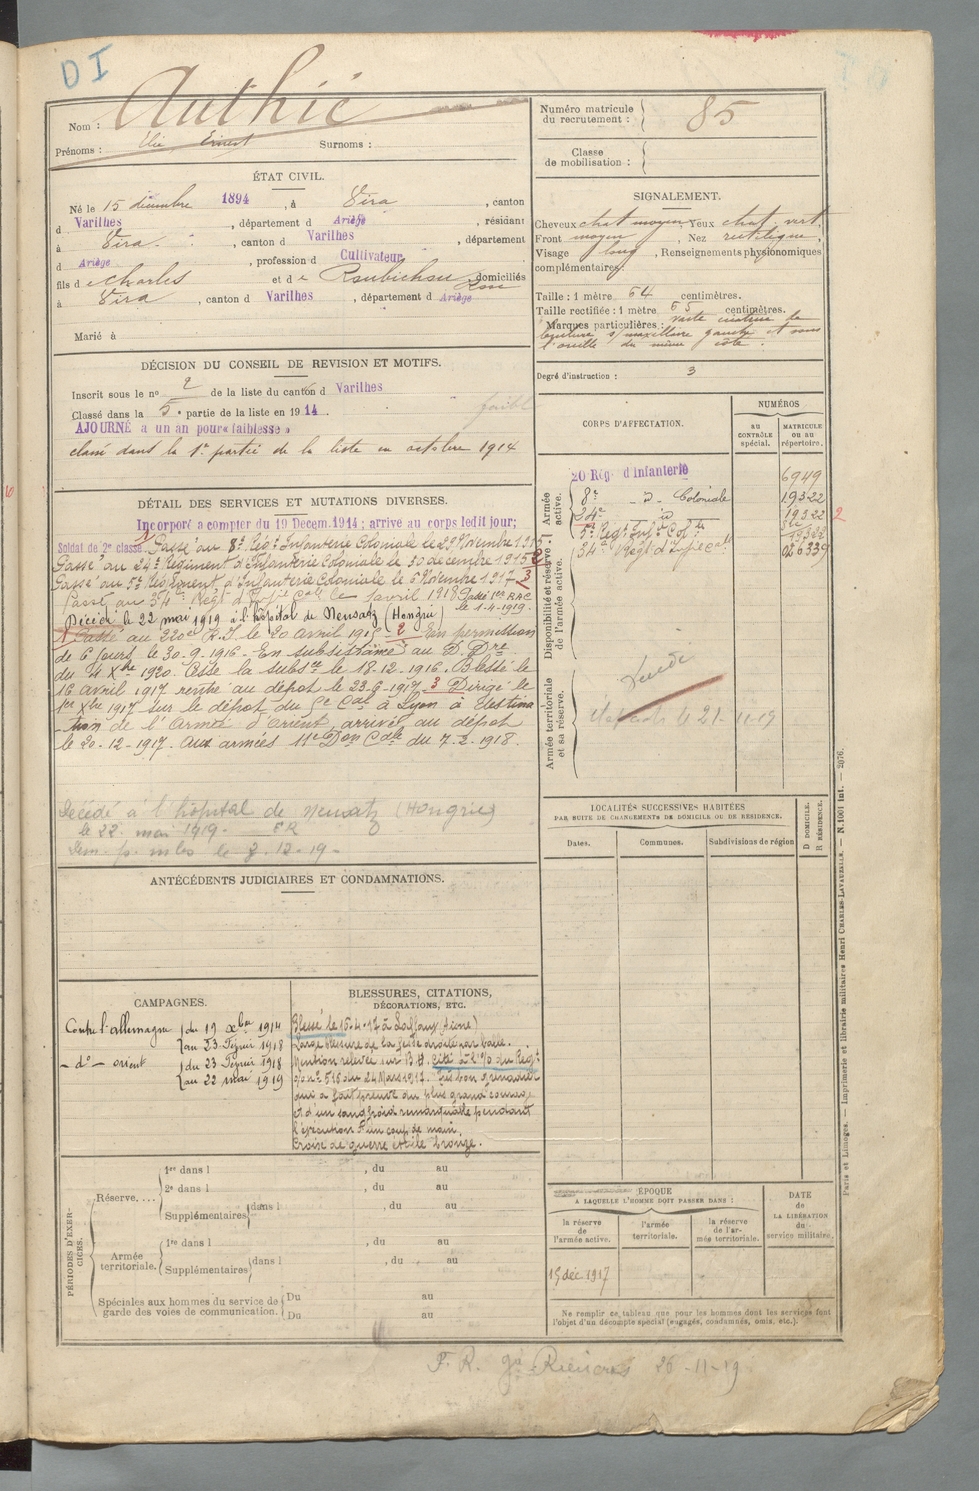 DI
Nom : Authié
Prénoms : Élie Ernest Surnoms :
Numéro matricule du recrutement : 85
Classe de mobilisation :
ÉTAT CIVIL.
Né le 15 décembre 1894, à Vira, canton
d Varilhes, département d Ariège, résidant
à Vira, canton d Varilhes, département
d Ariège, profession d Cultivateur
fils de Charles et de Roubichou Rose domiciliés
à Vira, canton d Varilhes, département d Ariège
Marié à
SIGNALEMENT.
Cheveux chat moyen, Yeux chat. vert
Front moyen, Nez rectiligne,
Visage long, Renseignements physionomiques
complémentaires:
Taille : 1 mètre 64 centimètres.
Taille rectifiée : 1 mètre 65 centimètres.
Marques particulières : vaste cicatrice de
s/ maxillaire gauche et sous
l'oreille du même côté.
Degré d'instruction : 3
DÉCISION DU CONSEIL DE REVISION ET MOTIFS.
Inscrit sous le no 2 de la liste du canton d Varilhes
Classé dans la 5e partie de la liste en 1914.
AJOURNÉ à un an pour « faiblesse »
classé dans la 1e partie de la liste en octobre 1914
DÉTAIL DES SERVICES ET MUTATIONS DIVERSES.
Incorporé a compter du 19 Decem. 1914 ; arrive au corps ledit jour;
Soldat de 2e classe. Passé au 8e Régt Infanterie Coloniale le 29 Novembre 1915
Passé au 24e Régiment d'Infanterie Coloniale le 30 décembre 1915 2
Passé au 5e Régiment d'Infanterie Coloniale le 6 Novembre 1917 3
Passé au 34e Régt d'Infie Cale le 1 avril 1918 Passé 1er RAC
le 1-4-1919.
Décédé le 22 mai 1919 à l'hôpital de Neusatz (Hongrie)
1 Passé au 220e R.I. le 20 avril 1915 - 2 En permission
de 6 jours le 30-9-1916 - En subsistance au D. Dre
du 4 Xbre 1920. Cesse la subsce le 18-12-1916. Blessé le
16 avril 1917 rentre au dépôt le 23-6-1917 3 Dirigé le
1er Xbre 1917 sur le dépôt du 5e Cal à Lyon à destina
tion de l'Armée d'Orient, arrivé au dépôt
le 20-12-1917. Aux armées 11e Don Cale du 7-2-1918.
Décédé à l'hôpital de Neusatz (Hongrie)
le 22 mai 1919 -
ANTÉCÉDENTS JUDICIAIRES ET CONDAMNATIONS.
CAMPAGNES.
Contre l'allemagne du 19 xbre 1914
au 23 Février 1918
- do - orient du 23 Février 1918
au 22 mai 1919
BLESSURES, CITATIONS, DÉCORATIONS, ETC.
Blessé le 16.4.17 à Laffaux (Aisne)
Large blessure de la fesse droite par balle.
Mention relevée sur B.H. cité à l'O/ du Régt
no 516 du 24 Mars 1917. Très bon grenadier
qui a fait preuve du plus grand courage
et d'un sang froid remarquable pendant
l'exécution d'un coup de main.
Croix de guerre étoile bronze.
PÉRIODES D'EXERCICES.
Réserve....
1re dans l , du au
2e dans l , du au
Supplémentaires dans l , du au
Armée territoriale.
1re dans l , du au
Supplémentaires dans l , du au
Spéciales aux hommes du service de garde des voies de communication.
Du au
Du au
CORPS D'AFFECTATION.
NUMÉROS
AU CONTRÔLE SPÉCIAL.
MATRICULE OU AU RÉPERTOIRE.
Armée active.
20 Régt d'Infanterie 6949
8e - d - Coloniale 19322
24e d 19322 2
5e Regt Infie Cole 19322
34e Régt d'Infie Cale 026339
Disponibilité et réserve de l'armée active.
Armée territoriale et sa réserve.
le 21-11-19
LOCALITÉS SUCCESSIVES HABITÉES
PAR SUITE DE CHANGEMENTS DE DOMICILE OU DE RÉSIDENCE.
Dates.
Communes.
Subdivisions de région
D DOMICILE.
R RÉSIDENCE.
ÉPOQUE
A LAQUELLE L'HOMME DOIT PASSER DANS :
la réserve de l'armée active.
l'armée territoriale.
la réserve de l'armée territoriale.
DATE de LA LIBÉRATION du service militaire.
15 déc 1917
Ne remplir ce tableau que pour les hommes dont les services font
l'objet d'un décompte spécial (engagés, condamnés, omis, etc.).
Paris et Limoges. — Imprimerie et librairie militaires Henri CHARLES-LAVAUZELLE. — N. 1001 int. — 2076.
F. R. 26-11-19